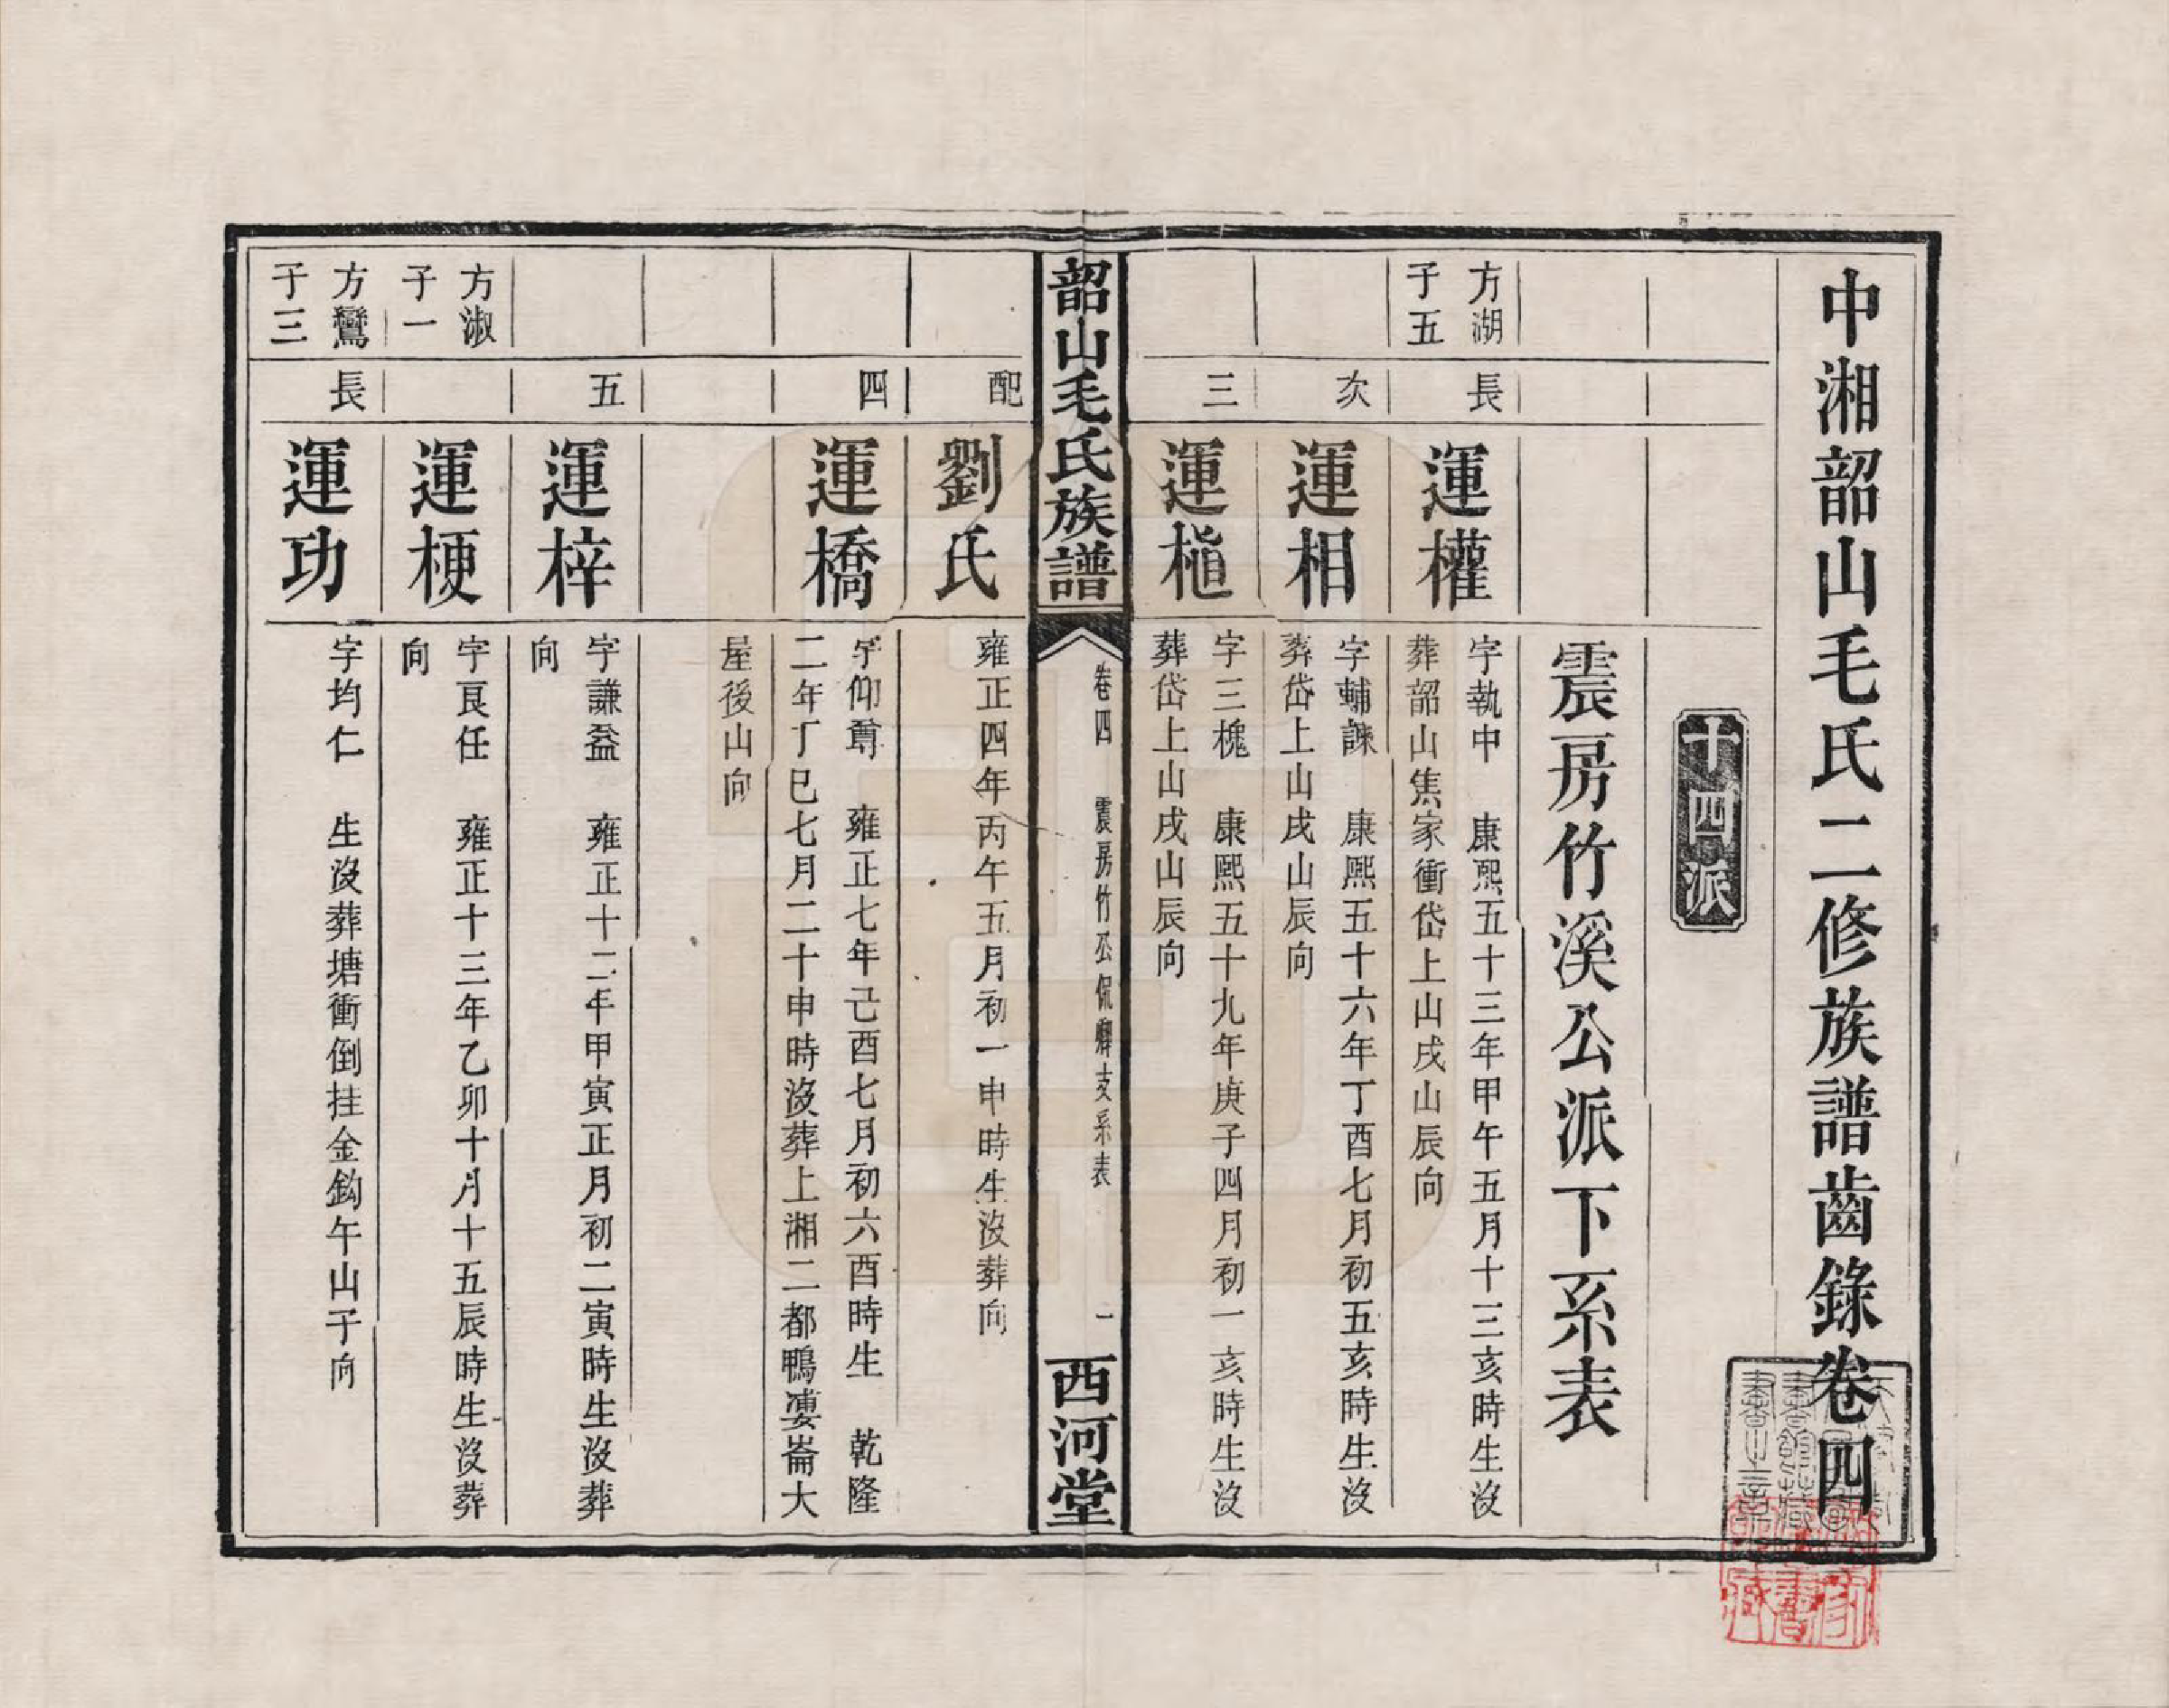 中湘韶山毛氏二修族譜齒錄卷四
十四派
震房竹溪公派下系表
方湖
子五
長
運權
字執中　康熙五十三年甲午五月十三亥時生沒
葬韶山焦家衝岱上山戌山辰向
次
運相
字輔諫　康熙五十六年丁酉七月初五亥時生沒
葬岱上山戌山辰向
三
運楦
字三槐　康熙五十九年庚子四月初一亥時生沒
葬岱上山戌山辰向
韶山毛氏族譜
卷四　震房竹公侃房支系表
一
西河堂
配
劉氏
雍正四年丙午五月初一申時生沒葬向
四
運橋
字仰尊　雍正七年己酉七月初六酉時生　乾隆
二年丁巳七月二十申時沒葬上湘二都鴨婁崙大
屋後山向
五
運梓
字謙益　雍正十二年甲寅正月初二寅時生沒葬
向
方淑
子一
運梗
字良任　雍正十三年乙卯十月十五辰時生沒葬
向
方鸞
子三
長
運功
字均仁　生沒葬塘衝倒挂金鈎午山子向